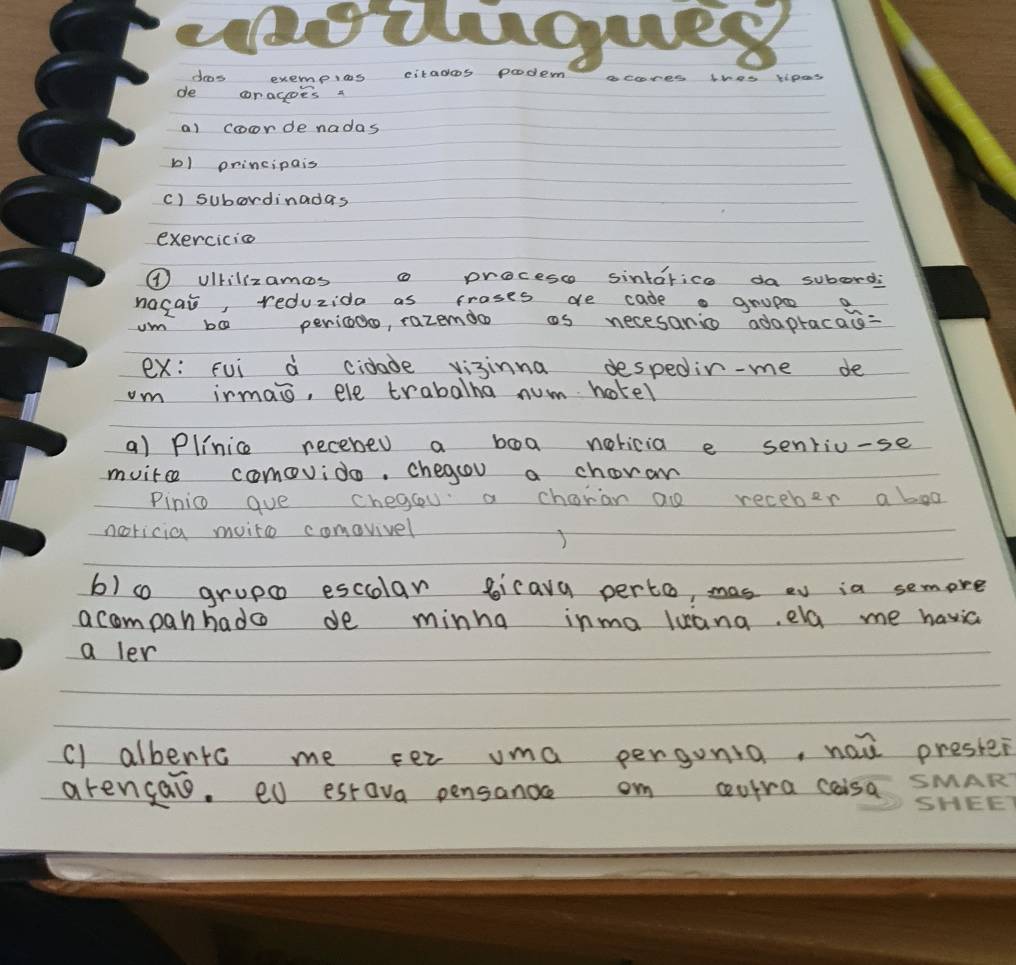 português
dos exemplos citados podem ocorres três tipos
de orações:
a) coordenadas
b) principais
c) subordinadas
exercicio
① ultilizamos o proceso sintático da subordi
naçaõ, reduzida as frases de cade grupo a
um bo periodo, fazemdo as necesario adaptacaõ=
ex: Fui à cidade vizinna despedir-me de
um irmaõ, ele trabalha num hotel
a) Plínio recebeu a boa noticia e sentiu-se
muito comovido. chegou a chorar
Pinio que chegou a chorar ao receber a boa
noticia muito comovivel
b) o grupo escolar ficava perto, mas eu ia sempre
acompanhado de minha irma luana. ela me havia
a ler
c) alberto me fez uma pergunta, naũ prestei
atençaõ. eu estava pensando om outra coisa
SMART
SHEET